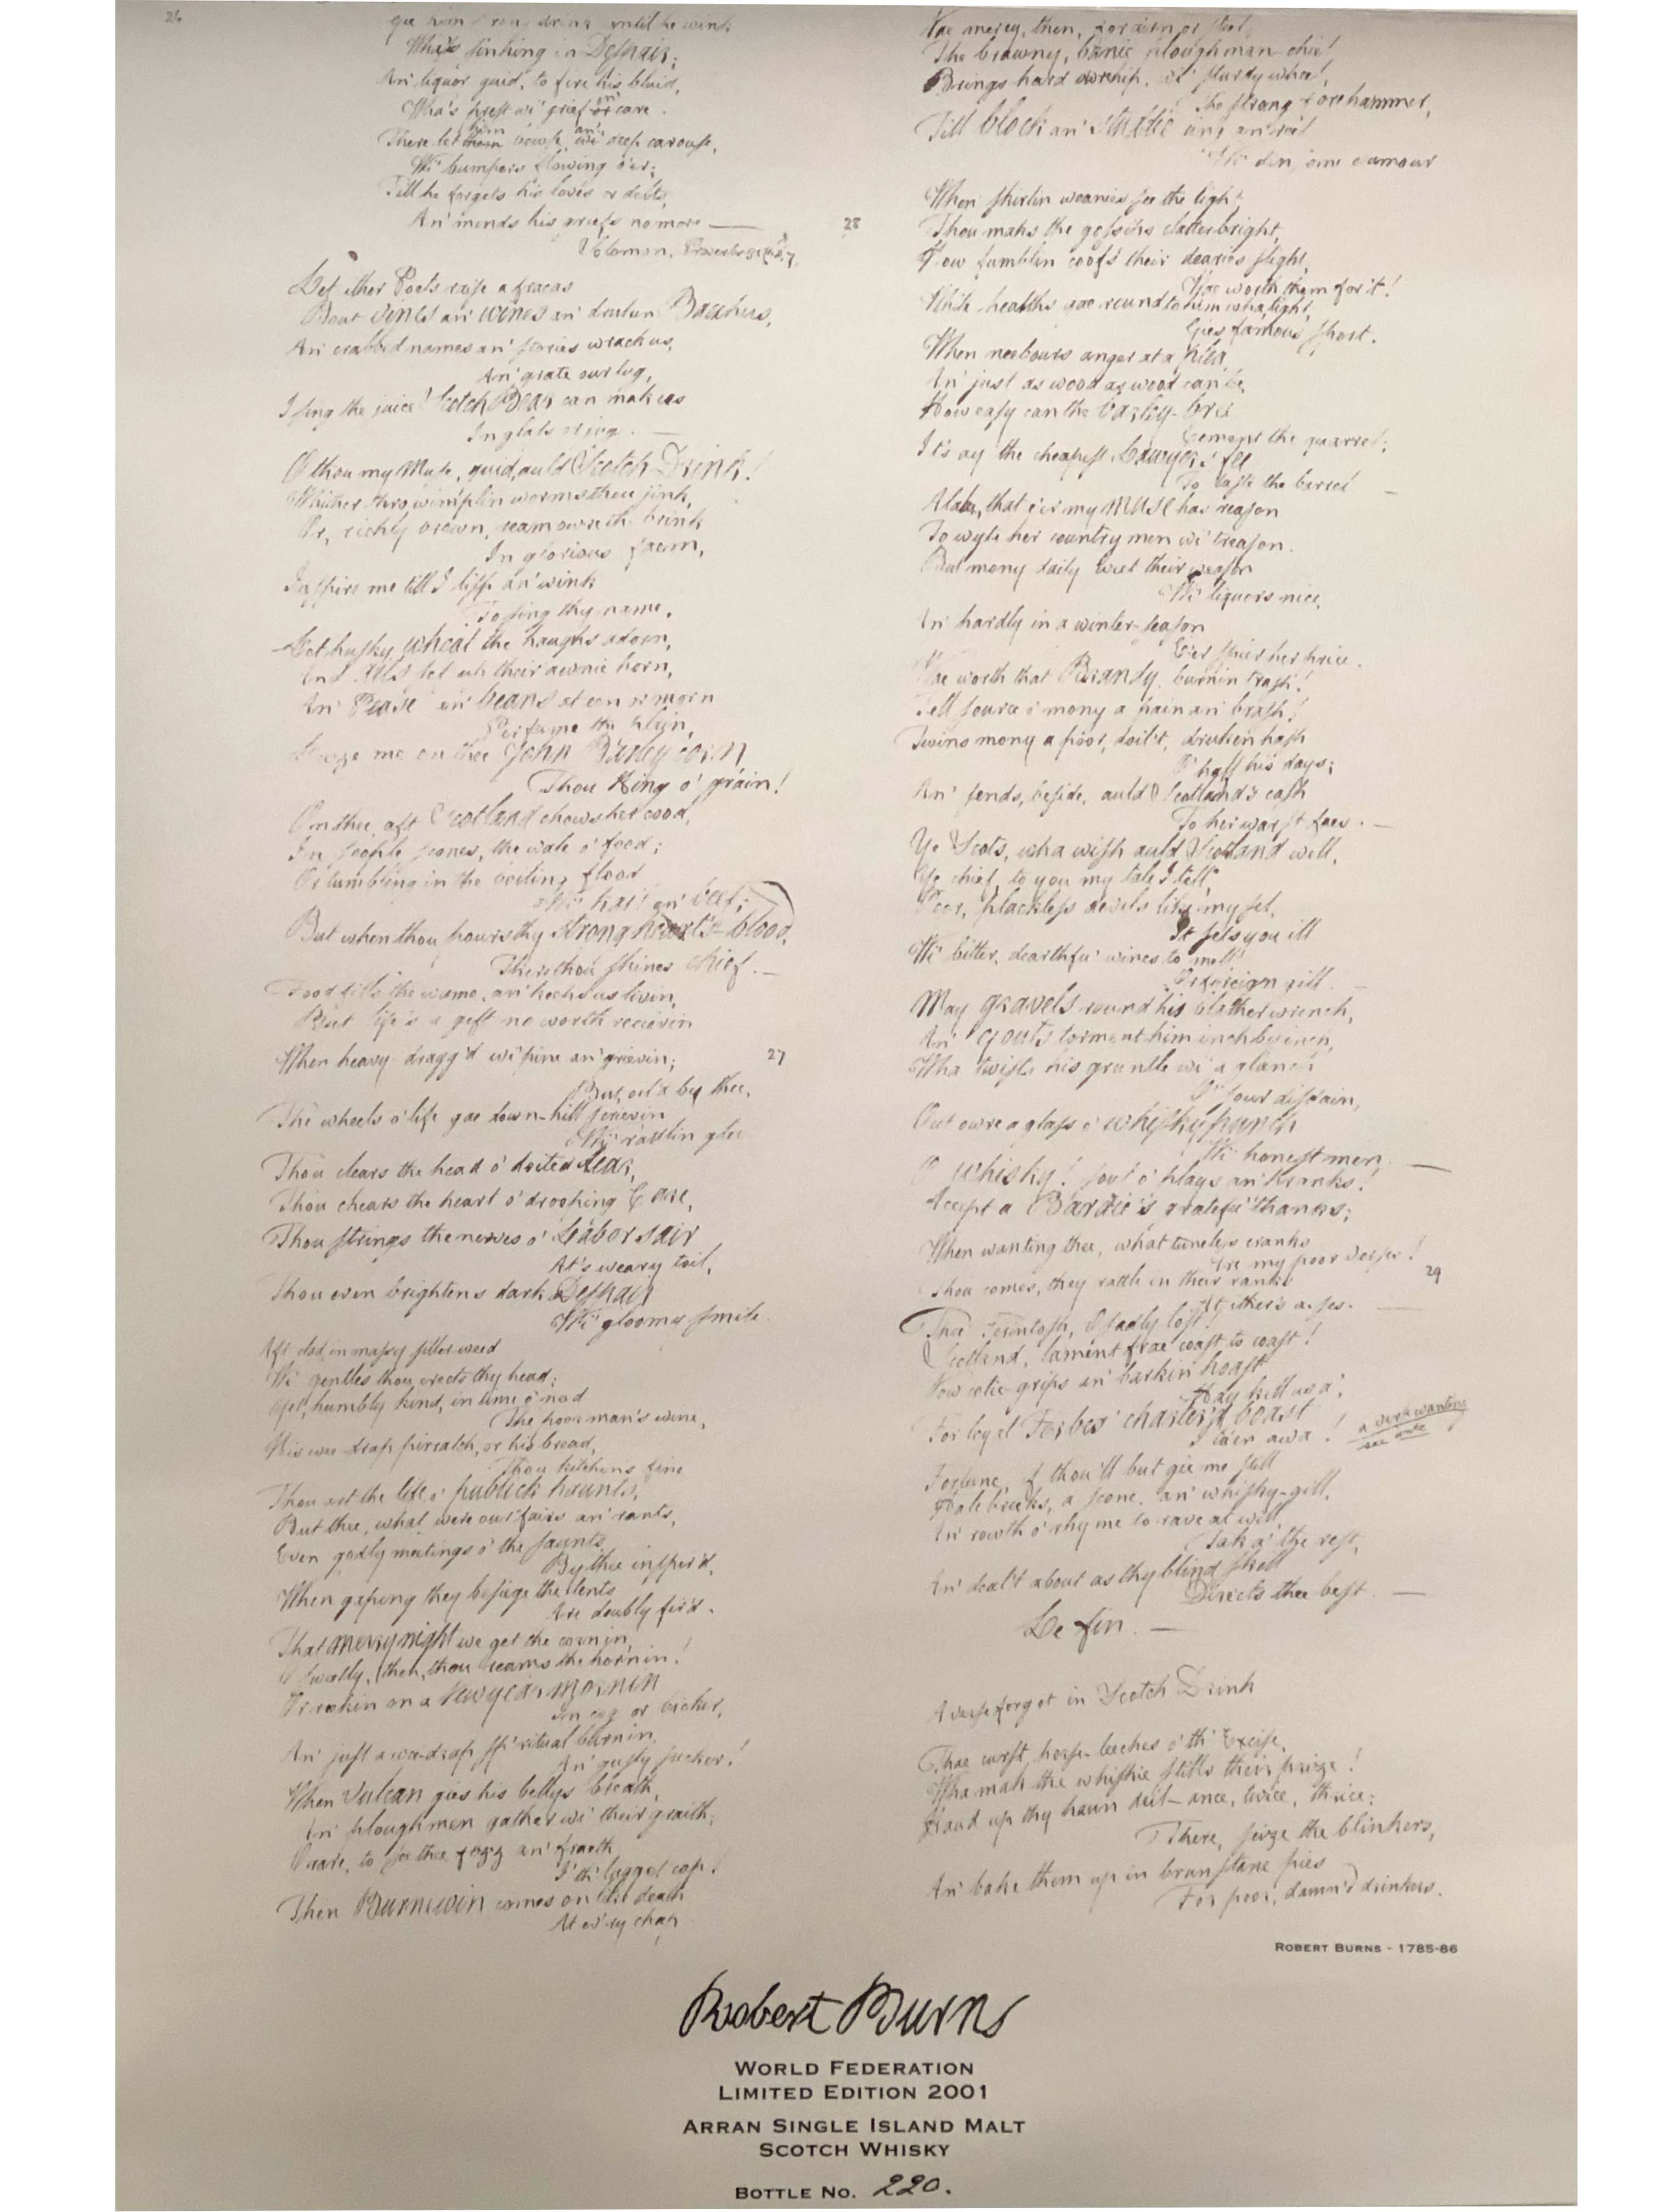 26
gie him strong drink until he wink
Wha's sinking in Despair;
An' liquor guid, to fire his bluid,
Wha's prest wi' grief or an' care.
There let them him bowse wi' an' deep carouse,
Wi' bumpers flowing o'er;
Till he forgets his loves or debts,
An' minds his griefs no more —
Solomon, Proverbs 31 Ch: 6, 7.
Let ither Poets raise a fracas
Bout vines an' wines an' drunken Bacchus,
An' crabbed names an' stories wrack us,
An' grate our lug,
I sing the juice Scotch Bear can mak us
In glass or jug. —
O thou my Muse, guid, auld Scotch Drink!
Whether thro wimplin worms thou jink,
Or, richly brown, ream owre the brink
In glorious faem,
Inspire me till I lisp an' wink
To sing thy name.
Let husky wheat the haughs adorn,
And Aits set up their awnie horn,
An' Pease an' beans at een or morn
Perfume the plain,
Leeze me on thee John Barleycorn
Thou King o' grain!
On thee, aft Scotland chows her cood,
In souple scones, the wale o' food;
Or tumbling in the boiling flood
Wi' kail an' beef;
But when thou pours thy strong heart's-blood,
There thou shines chief. —
Food fills the wame, an' keeps us livin,
But life's a gift no worth recievin
When heavy-dragg'd wi' pine an' grievin;
27
But, oil'd by thee,
The wheels o' life gae down-hill scrievin
Wi' rattlin glee
Thou clears the head o' doited Lear,
Thou chears the heart o' drooping Care,
Thou strings the nerves o' Labor sair
At's weary toil,
Thou even brightens dark Despair
Wi' gloomy smile.
Aft clad in massy siller weed
Wi' gentles thou erects thy head;
Yet, humbly kind, in time o' need
The poor man's wine,
His wee drap pirratch, or his bread,
Thou kitchens fine
Thou art the life o' publick haunts,
But thee, what were our fairs an' rants,
Even godly meetings o' the saunts
By thee inspir'd,
When gaping they besiege the tents
Are doubly fir'd.
That merry night we get the corn in,
O sweetly, then, thou reams the horn in!
Or reekin on a New year mornin
In cog or bicker,
An' just a wee drap sp'ritual burn in,
An' gusty sucker!
When Vulcan gies his bellys breath,
An' ploughmen gather wi' their graith,
O rare, to see thee fizz an' fraeth
I' th' lugget cap!
Then Burnewin comes on like death
At ev'ry chap.
Nae mercy, then, for airn or steel,
The brawny, banie ploughman chiel
Brings hard owrehip, wi' sturdy wheel,
The strong forehammer,
Till block an' studdie ring an' reel
Wi' din some clamour
When skirlin weanies see the light
28
Thou maks the gossips clatter bright,
How fumblin coofs their dearies slight,
Wae worth them for't!
While healths gae round to him wha, tight,
Gies famous sport.
When neebours anger at a plea,
An' just as wood as wood can be,
How easy can the barley-bree
Cement the quarrel:
It's ay the cheapest Lawyer's fee
To taste the barrel —
Alake, that e'er my Muse has reason
To wyte her country men wi' treason.
But mony daily weet their weason
Wi' liquors nice,
An' hardly in a winter-season
E'er spier her price.
Wae worth that Brandy, burnin trash!
Fell source o' mony a pain an' brash!
Twins mony a poor, doil't, druken hash
O' half his days;
An' sends, beside, auld Scotland's cash
To her warst faes. —
Ye Scots, wha wish auld Scotland well,
Ye chief, to you my tale I tell,
Poor, plackless devils like mysel,
It sets you ill
Wi' bitter, dearthfu' wines to mell
Or foreign gill. —
May gravels round his blather wrench,
An' gouts torment him inch by inch,
Wha twists his gruntle wi' a glanch
O' sour disdain,
Out owre a glass o' whisky punch
Wi' honest men. —
O whisky! soul o' plays an' pranks!
Accept a Bardie's gratefu' thanks;
When wanting thee, what tuneless cranks
Are my poor Verses!
29
Thou comes, they rattle in their ranks
At ither's arses. —
Thee Ferintosh, O sadly lost!
Scotland, lament frae coast to coast!
Now colic-grips an' barkin hoast
May kill us a',
For loyal Forbes' charter'd boast
Is taen awa!
a verse wanting
see note
Fortune, if thou'll but gie me still
Hale breeks, a scone, an' whisky-gill,
An' rowth o' rhyme to rave at will,
Tak a' the rest,
An' deal't about as thy blind skill
Directs thee best. —
Le fin. —
A verse forgot in Scotch Drink
Thae curst horse-leeches o' th' Excise,
Wha mak the whiskie stills their prize!
Haud up thy haun deil — ance, twice, thrice;
There, seize the blinkers,
An' bake them up in brunstane pies
For poor, damn'd drinkers.
ROBERT BURNS - 1785-86
Robert Burns
WORLD FEDERATION
LIMITED EDITION 2001
ARRAN SINGLE ISLAND MALT
SCOTCH WHISKY
BOTTLE NO. 220.